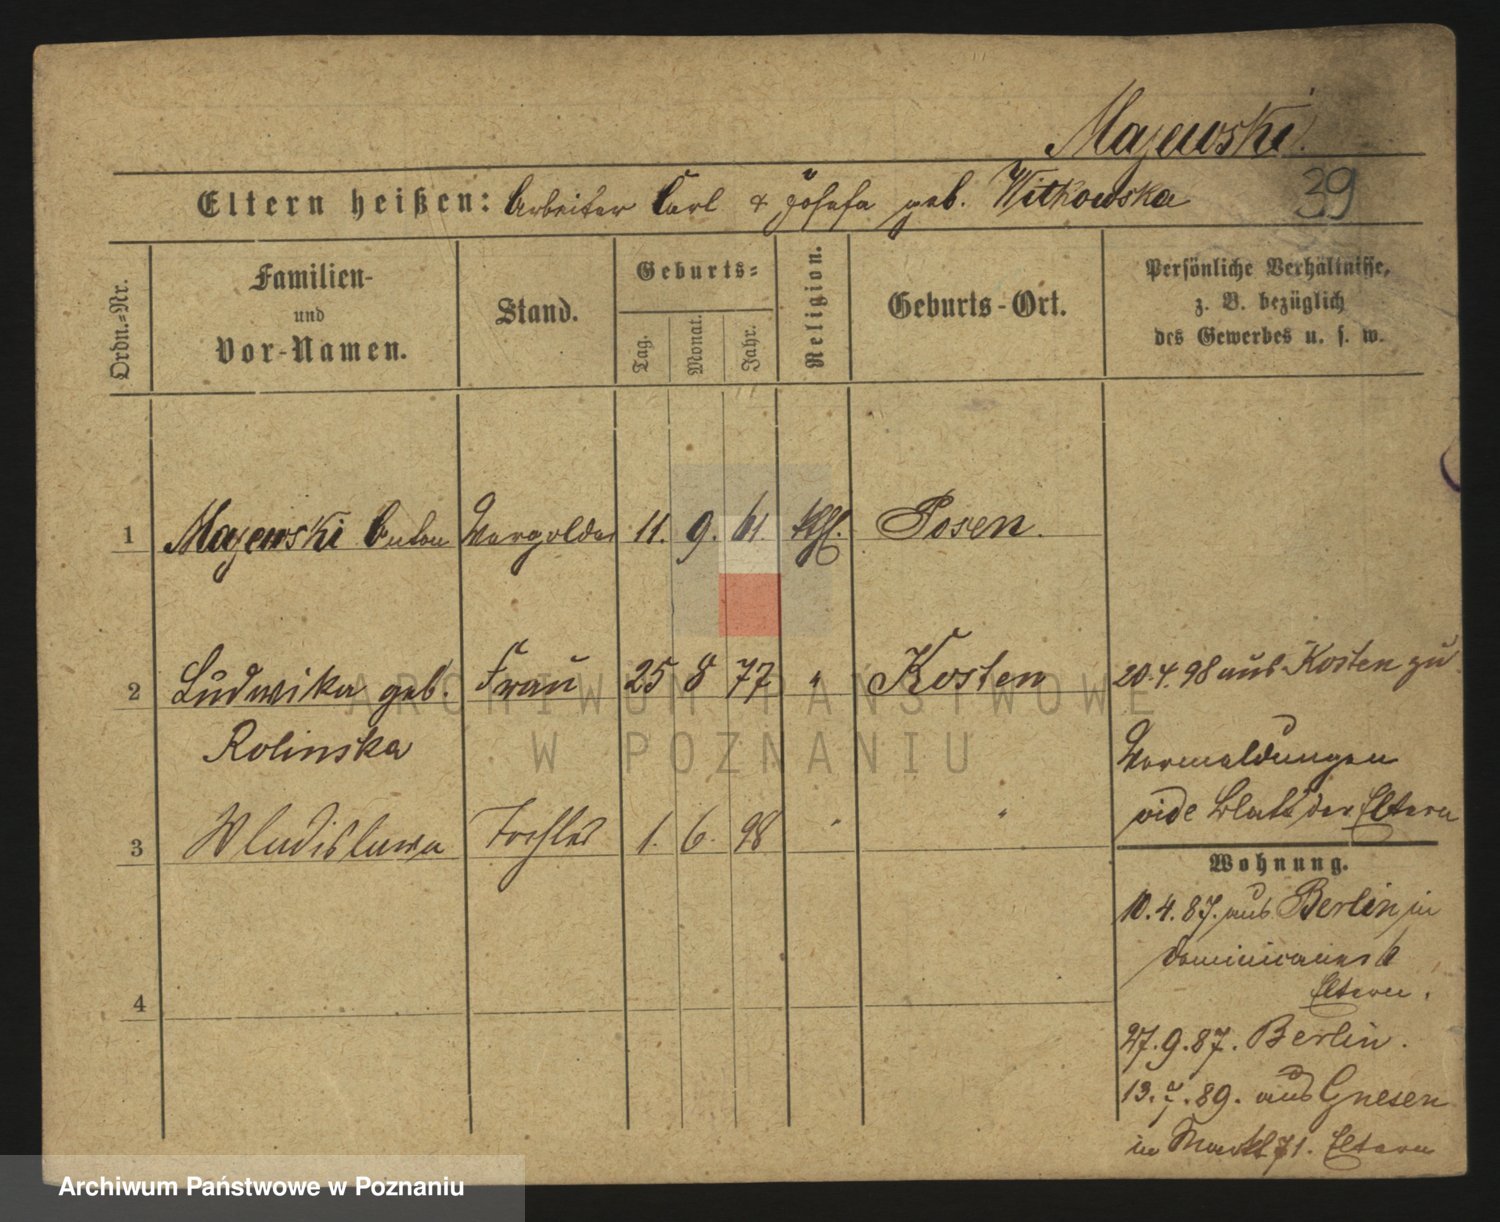 Majewski.
39
Eltern heißen: Arbeiter Carl & Josefa geb. Witkowska
Ordn.-Nr.
Familien-
und
Vor-Namen.
Stand.
Geburts-
Tag.
Monat.
Jahr.
Religion.
Geburts-Ort.
Persönliche Verhältnisse,
z. B. bezüglich
des Gewerbes u. s. w.
1 Majewski Anton Vergolder 11. 9. 61. kth. Posen.
2 Ludwika geb. Frau 25 8 77 " Kosten
Rolinska
3 Wladislawa Tochter 1. 6. 98 " "
4
20.4.98 aus Kosten zu
Vormeldungen
vide Blatt der Eltern
Wohnung.
10.4.87. aus Berlin in
Dominicaner
Eltern.
27.9.87. Berlin.
13.7.89. aus Gnesen
in Markt 71. Eltern
ARCHIWUM PAŃSTWOWE
W POZNANIU
Archiwum Państwowe w Poznaniu